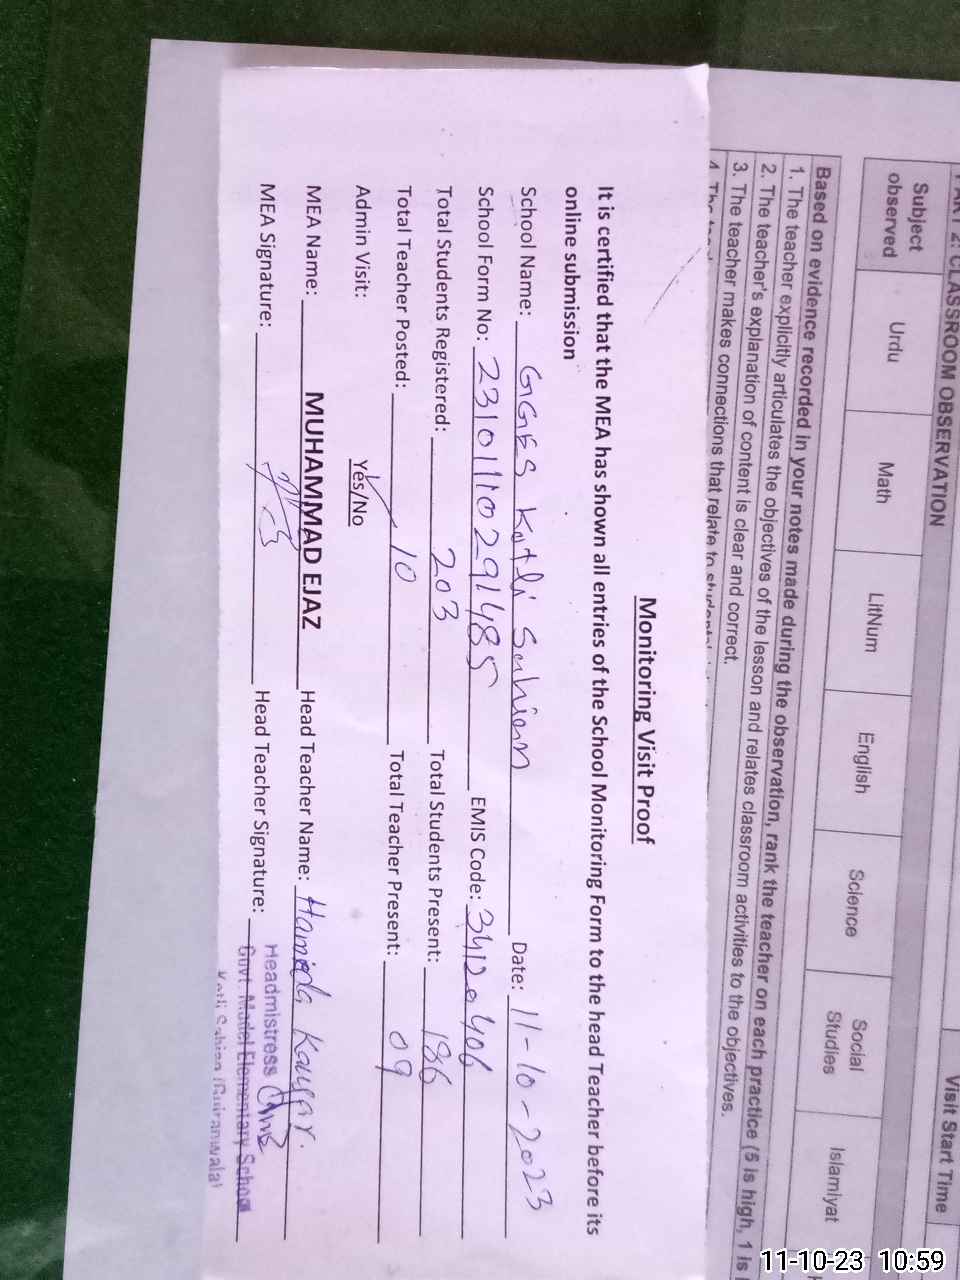 PART 2: CLASSROOM OBSERVATION
Visit Start Time
Subject observed
Urdu
Math
LitNum
English
Science
Social Studies
Islamiyat
Based on evidence recorded in your notes made during the observation, rank the teacher on each practice (5 is high, 1 is
1. The teacher explicitly articulates the objectives of the lesson and relates classroom activities to the objectives.
2. The teacher's explanation of content is clear and correct.
3. The teacher makes connections that relate to students'
Monitoring Visit Proof
It is certified that the MEA has shown all entries of the School Monitoring Form to the head Teacher before its
online submission
School Name: GGES Kotli Sahian Date: 11-10-2023
School Form No: 23101110291485 EMIS Code: 34120406
Total Students Registered: 203 Total Students Present: 186
Total Teacher Posted: 10 Total Teacher Present: 09
Admin Visit: Yes/No
MEA Name: MUHAMMAD EJAZ Head Teacher Name: Hamida Kausar.
MEA Signature: Head Teacher Signature:
Headmistress
Govt. Model Elementary School
Kotli Sahian (Gujranwala)
11-10-23 10:59